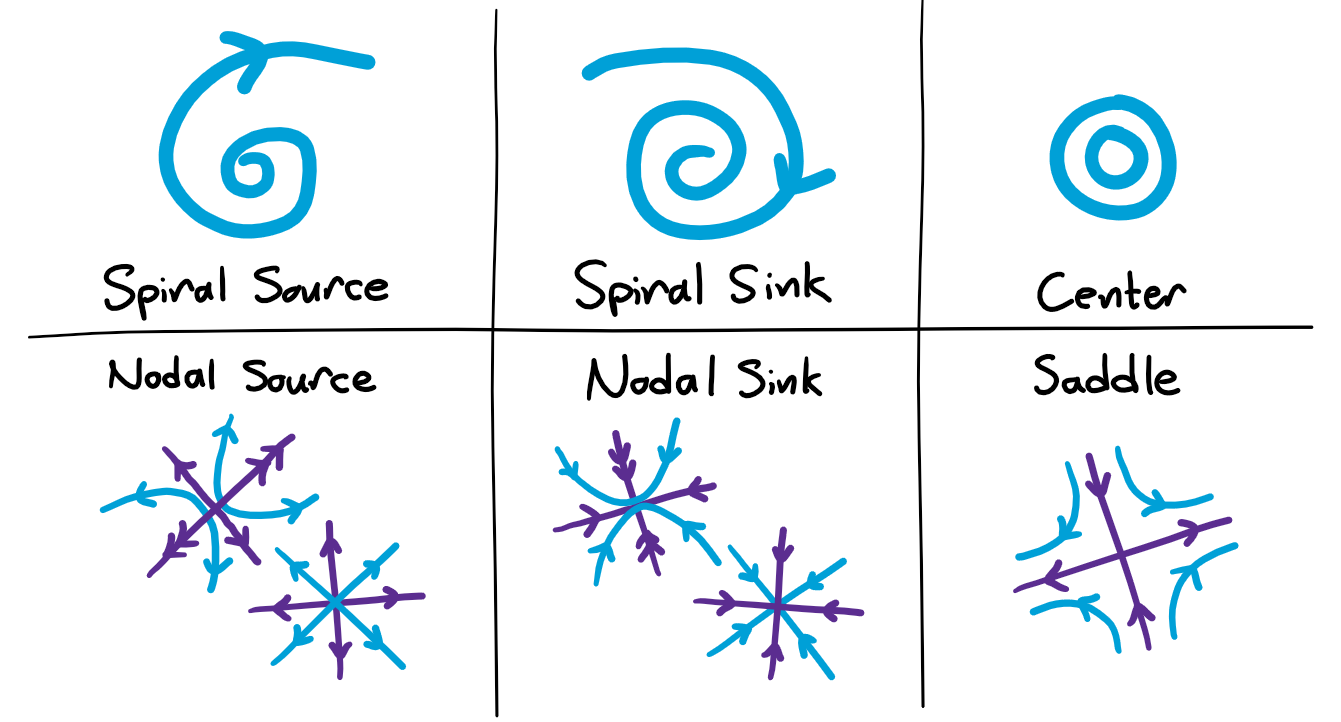 Spiral Source
Spiral Sink
Center
Nodal Source
Nodal Sink
Saddle